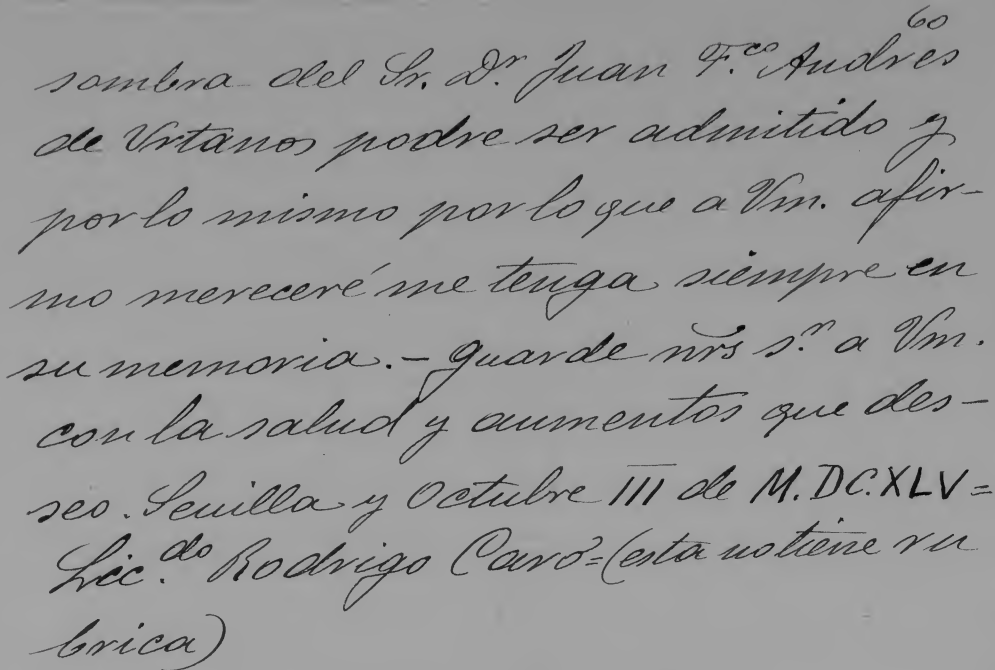 60
sombra del Sr. Dr. Juan F.co Andres
de Vrtanos podre ser admitido y
por lo mismo por lo que a Vm. afir-
mo mereceré me tenga siempre en
su memoria. - guarde nrs s.r a Vm.
con la salud y aumentos que des-
seo. Seuilla y Octubre III de M.DC.XLV =
Lic.do Rodrigo Caro = (esta no tiene ru
brica)